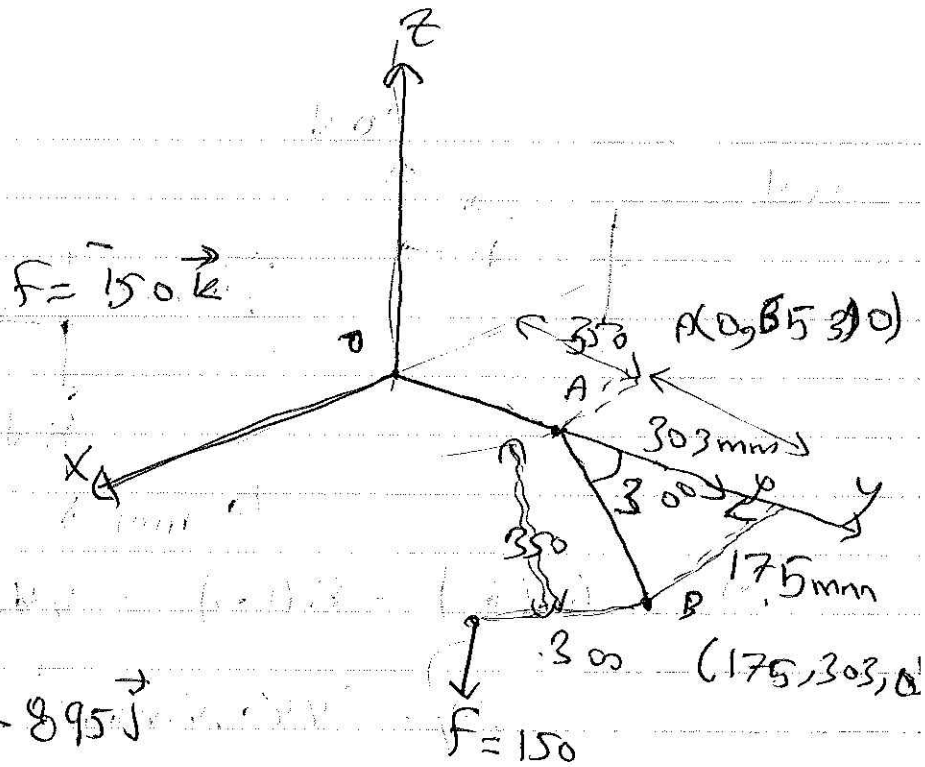 Z
F = -150 k⃗
O
350
A(0, 350)
A
303mm
30°
X
Y
350
175mm
B
300
(175, 303, 0
- 895 j⃗
F = 150